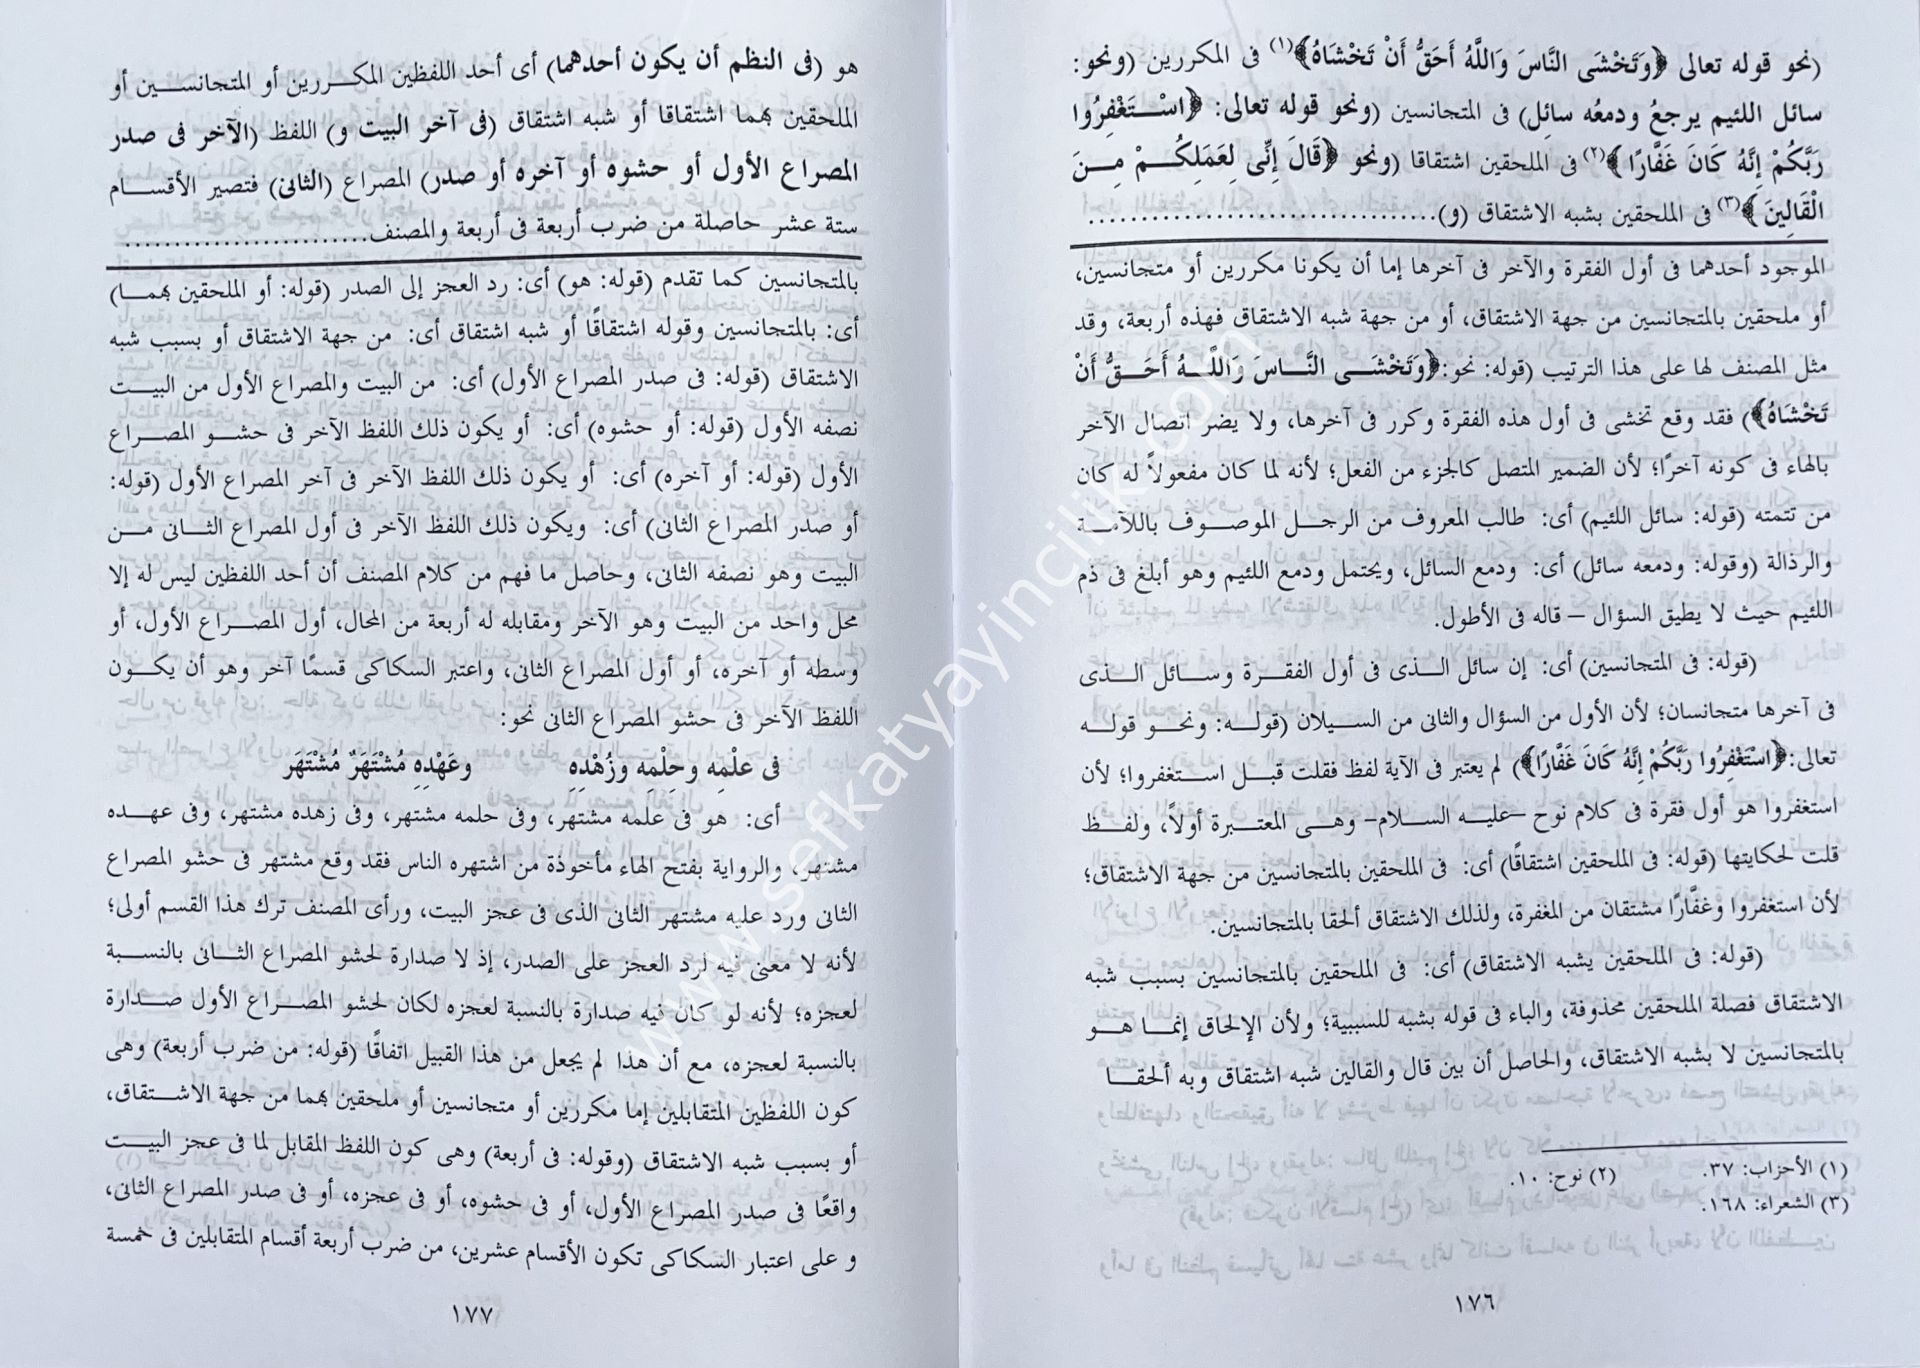 (نحو قوله تعالى ﴿وَتَخْشَى النَّاسَ وَاللَّهُ أَحَقُّ أَنْ تَخْشَاهُ﴾(١) فى المكررين (ونحو:
سائل اللئيم يرجعُ ودمعُه سائل) فى المتجانسين (ونحو قوله تعالى: ﴿اسْتَغْفِرُوا
رَبَّكُمْ إِنَّهُ كَانَ غَفَّارًا﴾(٢) فى الملحقين اشتقاقا (ونحو ﴿قَالَ إِنِّى لِعَمَلِكُمْ مِنَ
الْقَالِينَ﴾(٣) فى الملحقين بشبه الاشتقاق (و)..................................
الموجود أحدهما فى أول الفقرة والآخر فى آخرها إما أن يكونا مكررين أو متجانسين،
أو ملحقين بالمتجانسين من جهة الاشتقاق، أو من جهة شبه الاشتقاق فهذه أربعة، وقد
مثل المصنف لها على هذا الترتيب (قوله: نحو:﴿وَتَخْشَى النَّاسَ وَاللَّهُ أَحَقُّ أَنْ
تَخْشَاهُ﴾) فقد وقع تخشى فى أول هذه الفقرة وكرر فى آخرها، ولا يضر اتصال الآخر
بالهاء فى كونه آخرًا؛ لأن الضمير المتصل كالجزء من الفعل؛ لأنه لما كان مفعولاً له كان
من تتمته (قوله: سائل اللئيم) أى: طالب المعروف من الرجل الموصوف باللآمة
والرذالة (وقوله: ودمعه سائل) أى: ودمع السائل، ويحتمل ودمع اللئيم وهو أبلغ فى ذم
اللئيم حيث لا يطيق السؤال – قاله فى الأطول.
(قوله: فى المتجانسين) أى: إن سائل الذى فى أول الفقرة وسائل الذى
فى آخرها متجانسان؛ لأن الأول من السؤال والثانى من السيلان (قوله: ونحو قوله
تعالى:﴿اسْتَغْفِرُوا رَبَّكُمْ إِنَّهُ كَانَ غَفَّارًا﴾) لم يعتبر فى الآية لفظ فقلت قبل استغفروا؛ لأن
استغفروا هو أول فقرة فى كلام نوح –عليه السلام– وهى المعتبرة أولاً، ولفظ
قلت لحكايتها (قوله: فى الملحقين اشتقاقًا) أى: فى الملحقين بالمتجانسين من جهة الاشتقاق؛
لأن استغفروا وغفَّارًا مشتقان من المغفرة، ولذلك الاشتقاق ألحقا بالمتجانسين.
(قوله: فى الملحقين بشبه الاشتقاق) أى: فى الملحقين بالمتجانسين بسبب شبه
الاشتقاق فصلة الملحقين محذوفة، والباء فى قوله بشبه للسببية؛ ولأن الإلحاق إنما هو
بالمتجانسين لا بشبه الاشتقاق، والحاصل أن بين قال والقالين شبه اشتقاق وبه ألحقا
(١) الأحزاب: ٣٧. (٢) نوح: ١٠.
(٣) الشعراء: ١٦٨.
١٧٦
هو (فى النظم أن يكون أحدهما) أى أحد اللفظين المكررين أو المتجانسين أو
الملحقين بهما اشتقاقا أو شبه اشتقاق (فى آخر البيت و) اللفظ (الآخر فى صدر
المصراع الأول أو حشوه أو آخره أو صدر) المصراع (الثانى) فتصير الأقسام
ستة عشر حاصلة من ضرب أربعة فى أربعة والمصنف........................
بالمتجانسين كما تقدم (قوله: هو) أى: رد العجز إلى الصدر (قوله: أو الملحقين بهما)
أى: بالمتجانسين وقوله اشتقاقًا أو شبه اشتقاق أى: من جهة الاشتقاق أو بسبب شبه
الاشتقاق (قوله: فى صدر المصراع الأول) أى: من البيت والمصراع الأول من البيت
نصفه الأول (قوله: أو حشوه) أى: أو يكون ذلك اللفظ الآخر فى حشو المصراع
الأول (قوله: أو آخره) أى: أو يكون ذلك اللفظ الآخر فى آخر المصراع الأول (قوله:
أو صدر المصراع الثانى) أى: ويكون ذلك اللفظ الآخر فى أول المصراع الثانى من
البيت وهو نصفه الثانى، وحاصل ما فهم من كلام المصنف أن أحد اللفظين ليس له إلا
محل واحد من البيت وهو الآخر ومقابله له أربعة من المحال، أول المصراع الأول، أو
وسطه أو آخره، أو أول المصراع الثانى، واعتبر السكاكى قسمًا آخر وهو أن يكون
اللفظ الآخر فى حشو المصراع الثانى نحو:
فى علْمِه وحِلْمِه وزُهْدِهِ وعَهْدِهِ مُشْتَهَرٌ مُشْتَهَر
أى: هو فى علمه مشتهر، وفى حلمه مشتهر، وفى زهده مشتهر، وفى عهده
مشتهر، والرواية بفتح الهاء مأخوذة من اشتهره الناس فقد وقع مشتهر فى حشو المصراع
الثانى ورد عليه مشتهر الثانى الذى فى عجز البيت، ورأى المصنف ترك هذا القسم أولى؛
لأنه لا معنى فيه لرد العجز على الصدر، إذ لا صدارة لحشو المصراع الثانى بالنسبة
لعجزه؛ لأنه لو كان فيه صدارة بالنسبة لعجزه لكان لحشو المصراع الأول صدارة
بالنسبة لعجزه، مع أن هذا لم يجعل من هذا القبيل اتفاقًا (قوله: من ضرب أربعة) وهى
كون اللفظين المتقابلين إما مكررين أو متجانسين أو ملحقين بهما من جهة الاشتقاق،
أو بسبب شبه الاشتقاق (وقوله: فى أربعة) وهى كون اللفظ المقابل لما فى عجز البيت
واقعًا فى صدر المصراع الأول، أو فى حشوه، أو فى عجزه، أو فى صدر المصراع الثانى،
و على اعتبار السكاكى تكون الأقسام عشرين، من ضرب أربعة أقسام المتقابلين فى خمسة
١٧٧
www.sefkatyayincilik.com